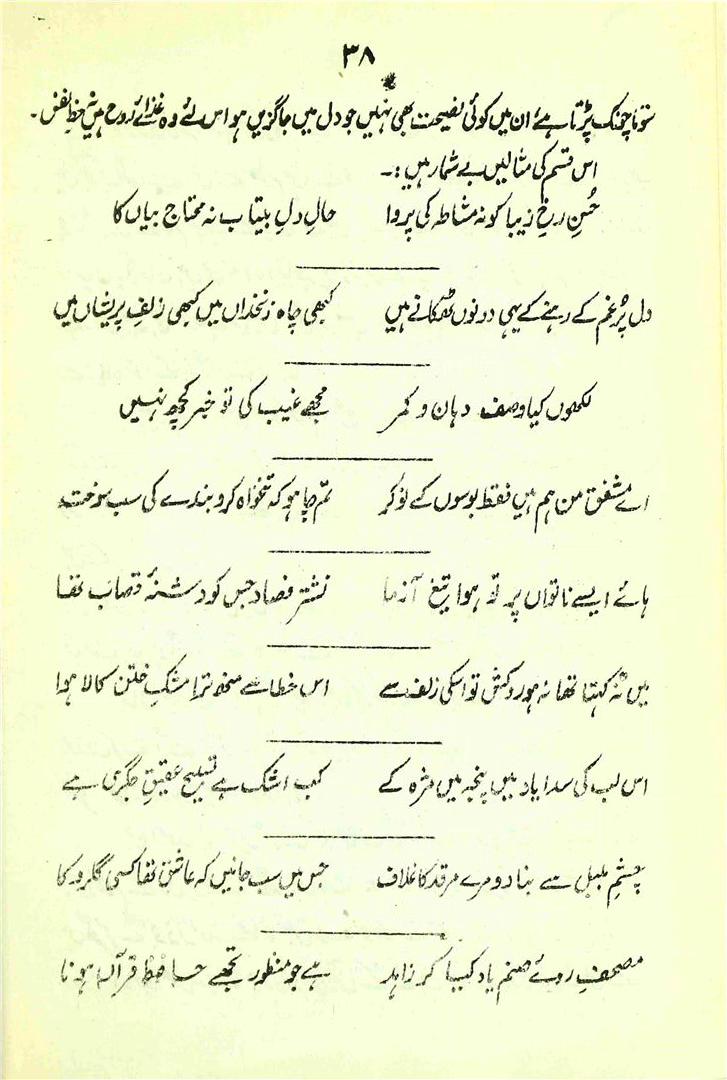 ۳۸
سوتا چونک پڑتا ہے ان میں کوئی نصیحت بھی نہیں جو دل میں جاگزیں ہو اس لئے وہ غذائے روح ہیں نہ حظِ نفس۔
اس قسم کی مثالیں بے شمار ہیں:۔
حُسنِ رخِ زیبا کو نہ مشاطہ کی پروا حالِ دلِ بیتاب نہ محتاج بیاں کا
دل پُر غم کے رہنے کے یہی دونوں ٹھکانے ہیں کبھی چاہ زنخداں میں کبھی زلفِ پریشاں میں
لکھوں کیا وصف دہان و کمر مجھے غیب کی تو خبر کچھ نہیں
اے مشفق من ہم ہیں فقط بوسوں کے نوکر تم چاہو کہ تنخواہ کرو بندے کی سب سوخت
ہائے ایسے ناتواں پر تو ہوا تیغ آزما نشتر فصاد جس کو دشنۂ قصاب تھا
میں نہ کہتا تھا نہ ہو روکش تو اسکی زلف سے اس خطا سے منھ ترا مشکِ ختن کالا ہوا
اس لب کی سدا یاد میں پنجہ میں مژہ کے کب اشک ہے تسبیح عقیقِ جگری ہے
چشمِ بلبل سے بنا دو مرے مرقد کا غلاف جس میں سب جانیں کہ عاشق تھا کسی گلرو کا
مصحفِ روئے صنم یاد کیا کر زاہد ہے جو منظور تجھے حافظ قرآں ہونا